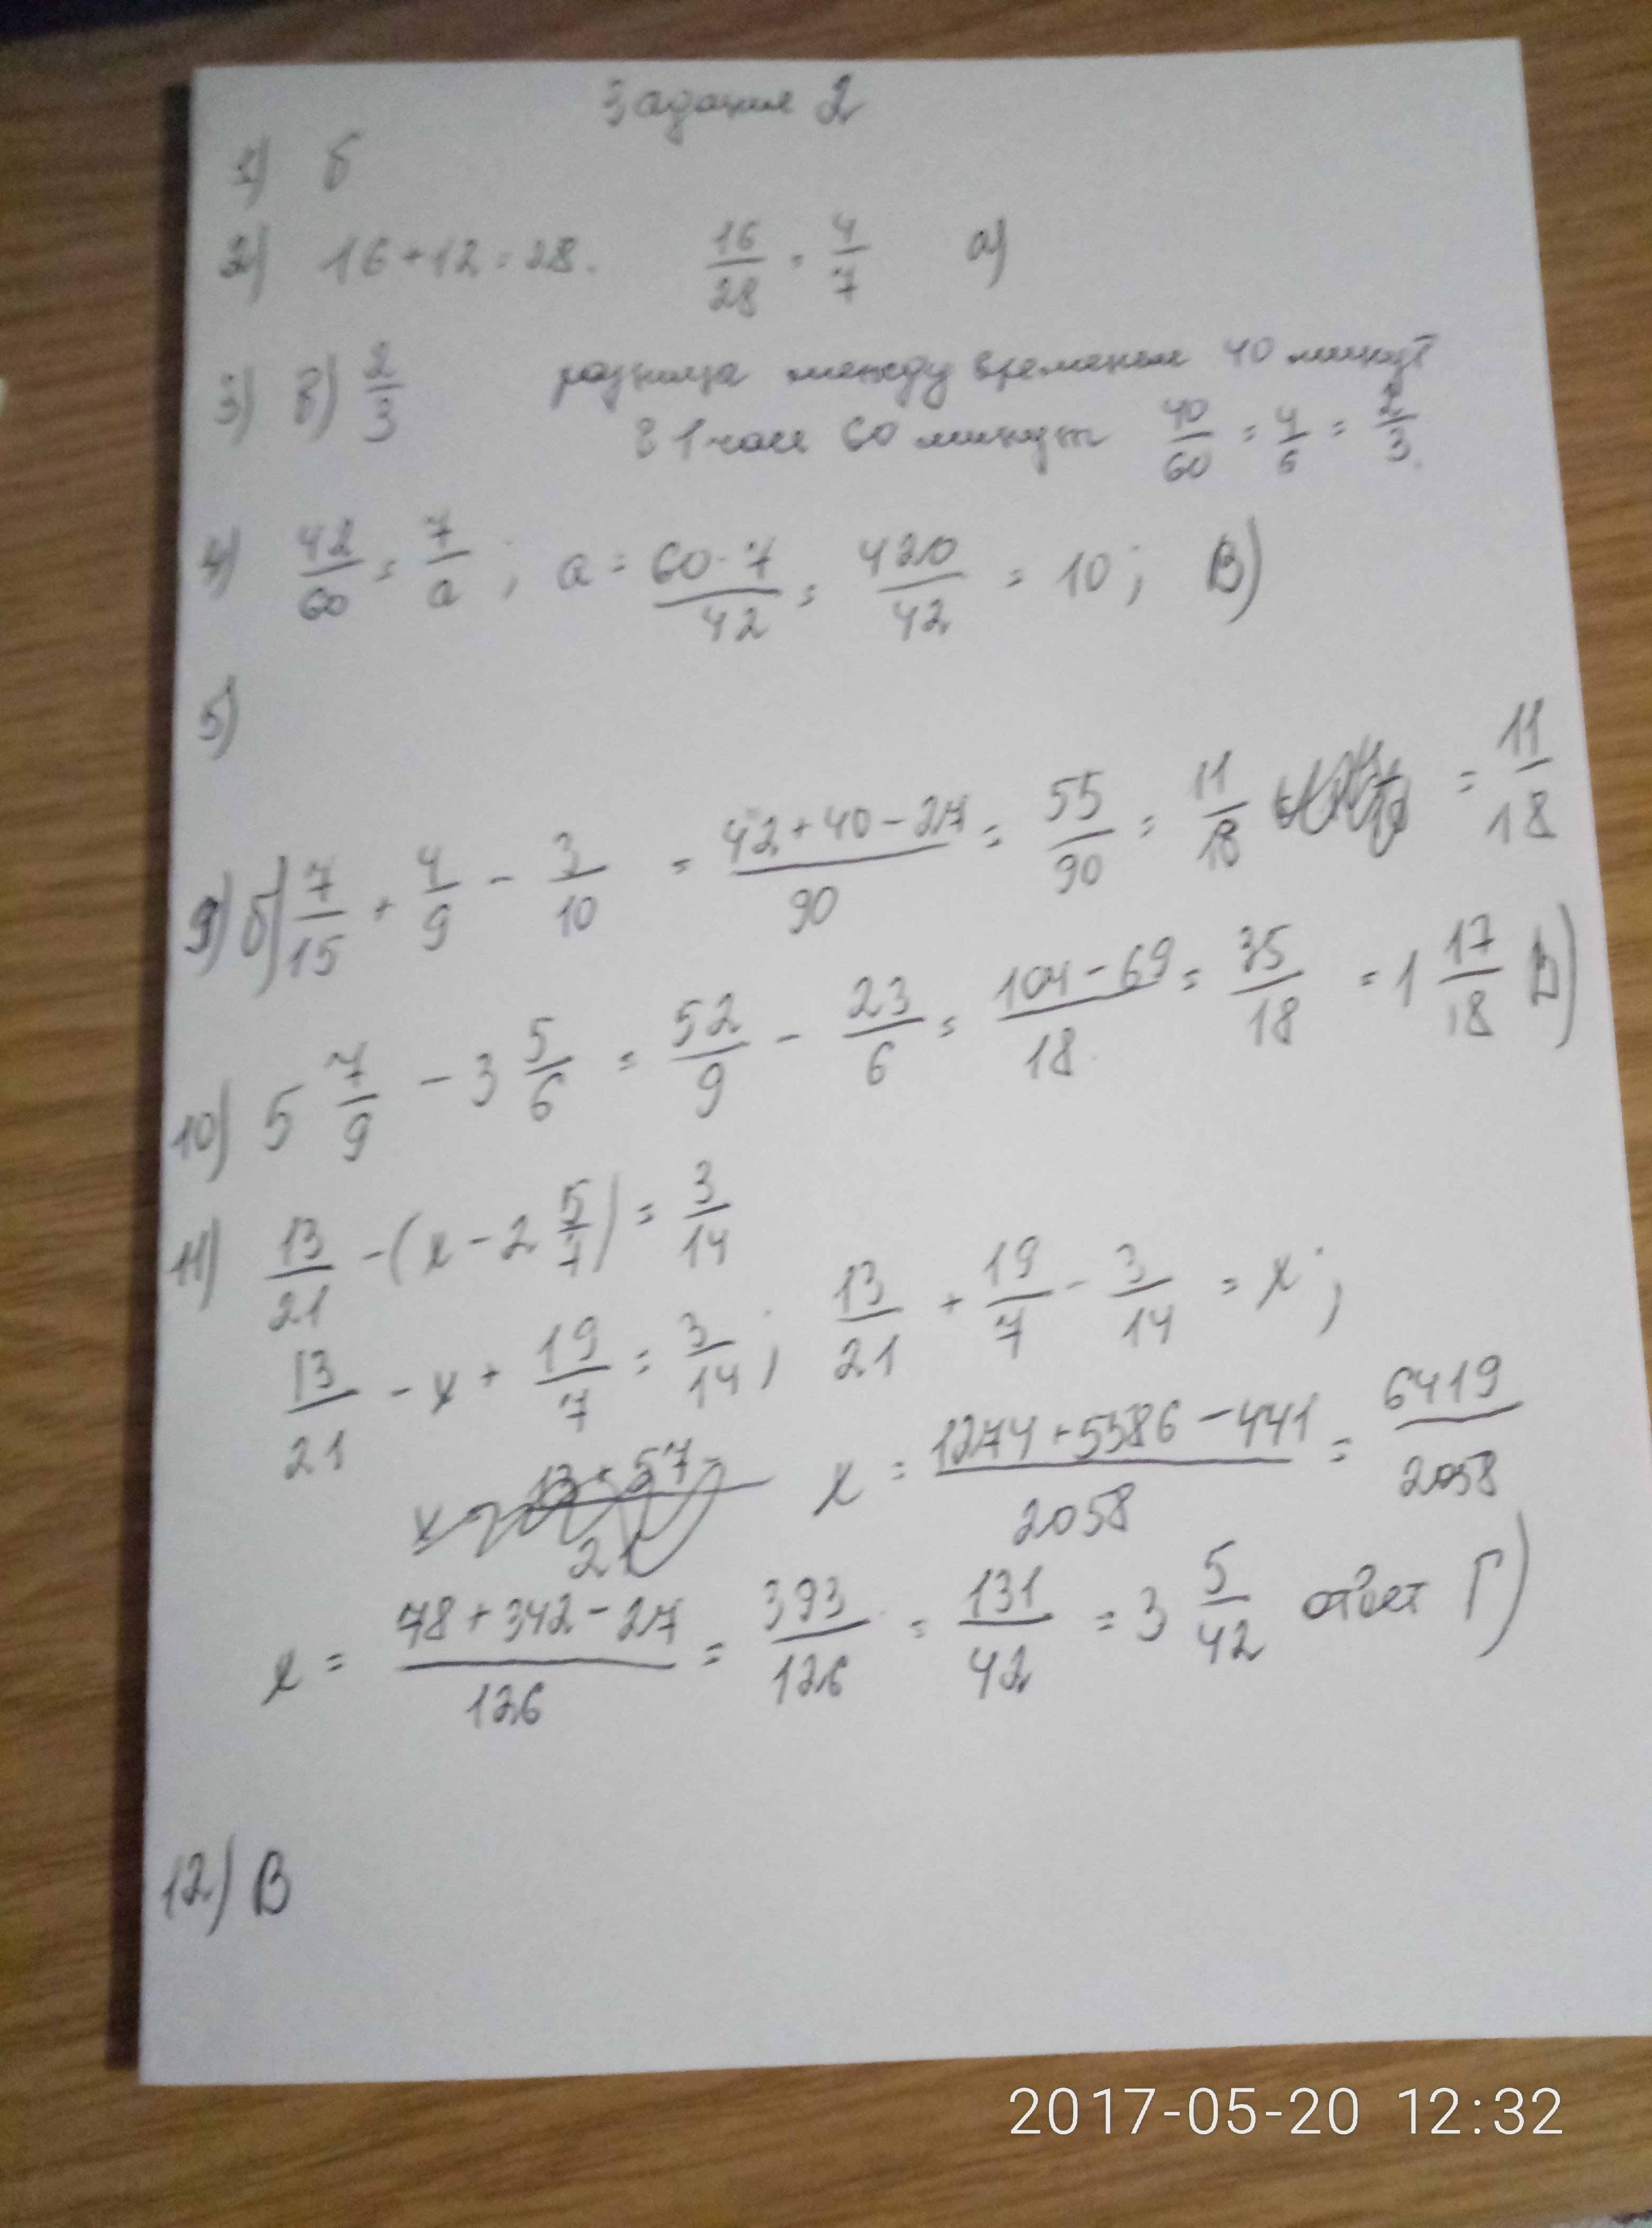 Задание 2
1) б
2) 16+12=28. 16/28 = 4/7 а)
3) в) 2/3 разница между временем 40 минут
В 1 часе 60 минут 40/60 = 4/6 = 2/3.
4) 42/60 = 7/a ; a = 60·7/42 = 420/42 = 10 ; В)
5)
9) б) 7/15 + 4/9 - 3/10 = 42+40-27/90 = 55/90 = 11/18 = 11/18
10) 5 7/9 - 3 5/6 = 52/9 - 23/6 = 104-69/18 = 35/18 = 1 17/18 В)
11) 13/21 - (x - 2 5/7) = 3/14
13/21 - x + 19/7 = 3/14 ; 13/21 + 19/7 - 3/14 = x ;
x = 13+57-/21 x = 1274+5586-441/2058 = 6419/2058
x = 78+342-27/126 = 393/126 = 131/42 = 3 5/42 ответ Г)
12) В
2017-05-20 12:32